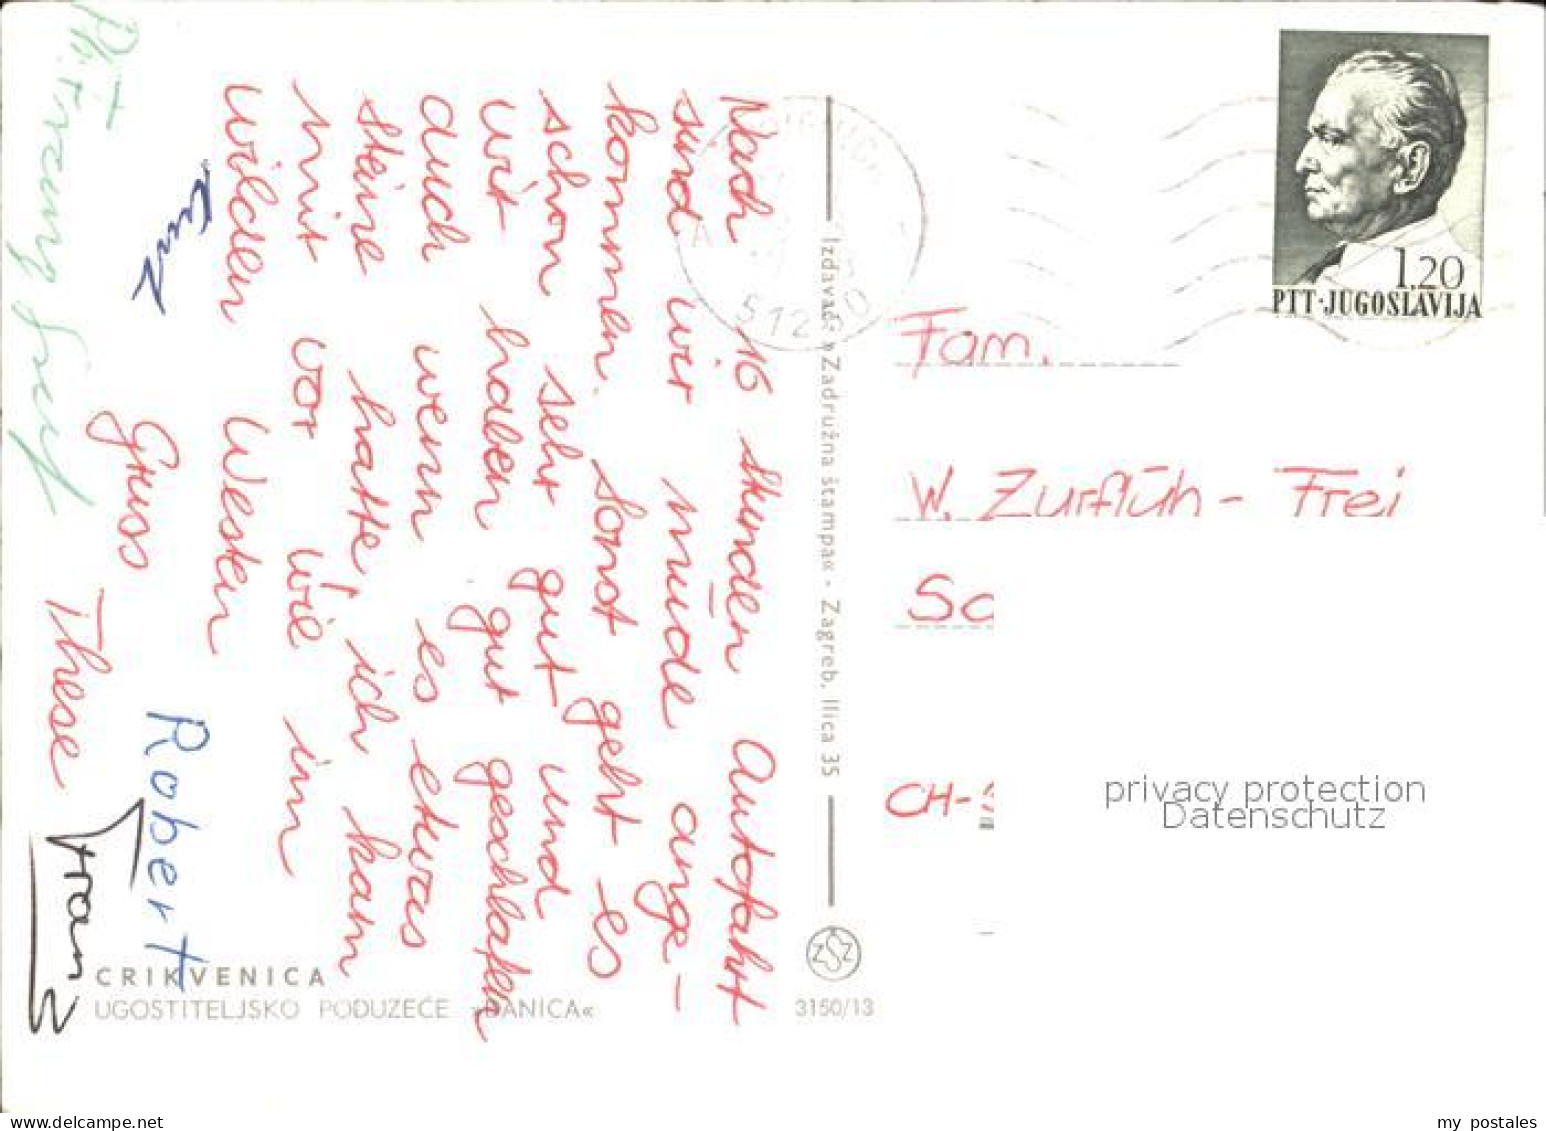 Nach 16 stunden Autofahrt
sind wir müde ange-
kommen. Sonst geht es
schon sehr gut und
wir haben gut geschlafen
auch wenn es etwas
steine hatte! ich kam
mir vor wie im
wilden Westen
Gruss
These
Robert
Franz
CRIKVENICA
UGOSTITELJSKO PODUZEĆE »DANICA«
3150/13
Izdavač: »Zadružna štampa« - Zagreb, Ilica 35
51260
1.20
PTT·JUGOSLAVIJA
Fam.
W. Zurflüh - Frei
Sc
CH-
privacy protection
Datenschutz
my postales